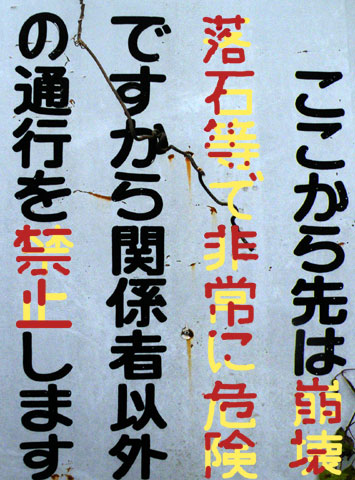 ここから先は崩壊
落石等で非常に危険
ですから関係者以外
の通行を禁止します